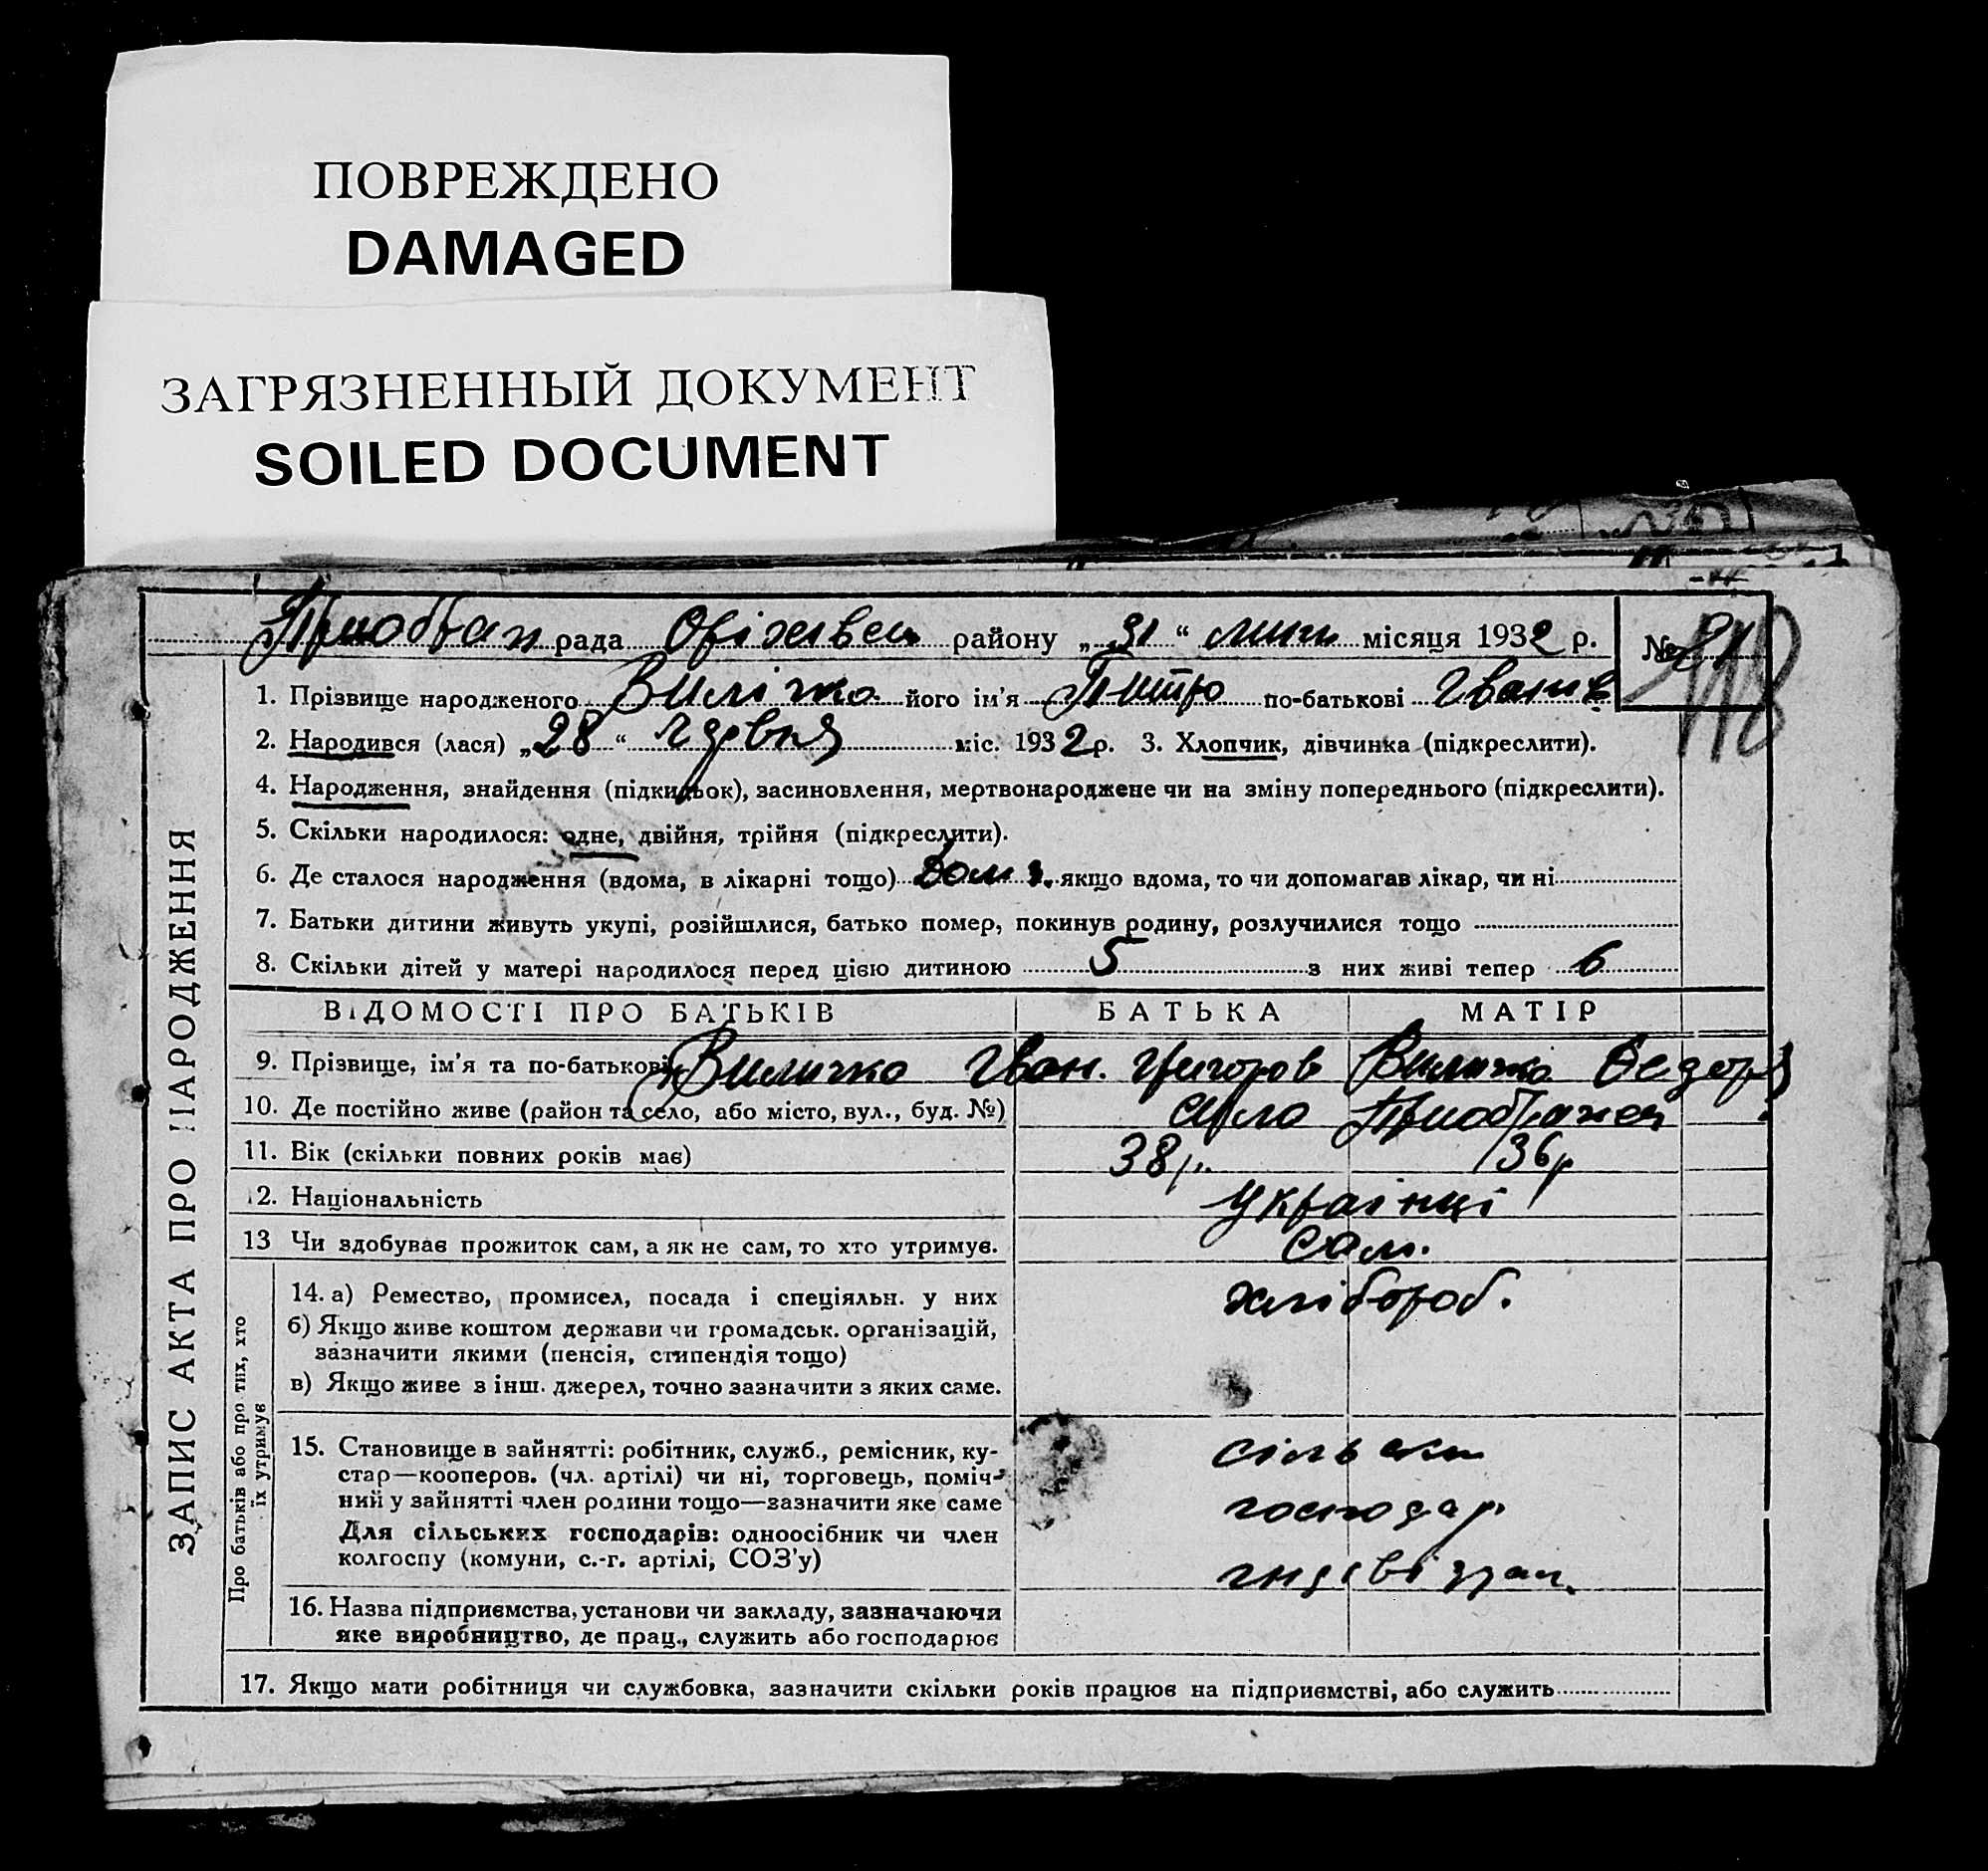 ПОВРЕЖДЕНО
DAMAGED
ЗАГРЯЗНЕННЫЙ ДОКУМЕНТ
SOILED DOCUMENT
рада району „31“ місяця 1932 р. №
1. Прізвище народженого його ім'я Питро по-батькові Іванів
2. Народився (лася) „28“ чэрвня міс. 1932 р. 3. Хлопчик, дівчинка (підкреслити).
4. Народження, знайдення (підкидьок), засиновлення, мертвонароджене чи на зміну попереднього (підкреслити).
5. Скільки народилося: одне, двійня, трійня (підкреслити).
6. Де сталося народження (вдома, в лікарні тощо) якщо вдома, то чи допомагав лікар, чи ні
7. Батьки дитини живуть укупі, розійшлися, батько помер, покинув родину, розлучилися тощо
8. Скільки дітей у матері народилося перед цією дитиною 5 з них живі тепер 6
ВІДОМОСТІ ПРО БАТЬКІВ БАТЬКА МАТІР
9. Прізвище, ім'я та по-батькові Виличко Іван. Григоров Виличко Федора
10. Де постійно живе (район та село, або місто, вул., буд. №) село
11. Вік (скільки повних років має) 38 р. 36 р
12. Національність Українці
13 Чи здобуває прожиток сам, а як не сам, то хто утримує. Сам.
14. а) Ремество, промисел, посада і спеціяльн. у них хлібороб.
б) Якщо живе коштом держави чи громадськ. організацій,
зазначити якими (пенсія, стипендія тощо)
в) Якщо живе з інш. джерел, точно зазначити з яких саме.
15. Становище в зайнятті: робітник, служб., ремісник, ку-
стар—кооперов. (чл. артілі) чи ні, торговець, поміч-
ний у зайнятті член родини тощо—зазначити яке саме
Для сільських господарів: одноосібник чи член
колгоспу (комуни, с.-г. артілі, СОЗ'у)
сільски
господар
16. Назва підприємства, установи чи закладу, зазначаючи
яке виробництво, де прац., служить або господарює
17. Якщо мати робітниця чи службовка, зазначити скільки років працює на підприємстві, або служить
ЗАПИС АКТА ПРО НАРОДЖЕННЯ
Про батьків або про тих, хто
їх утримує